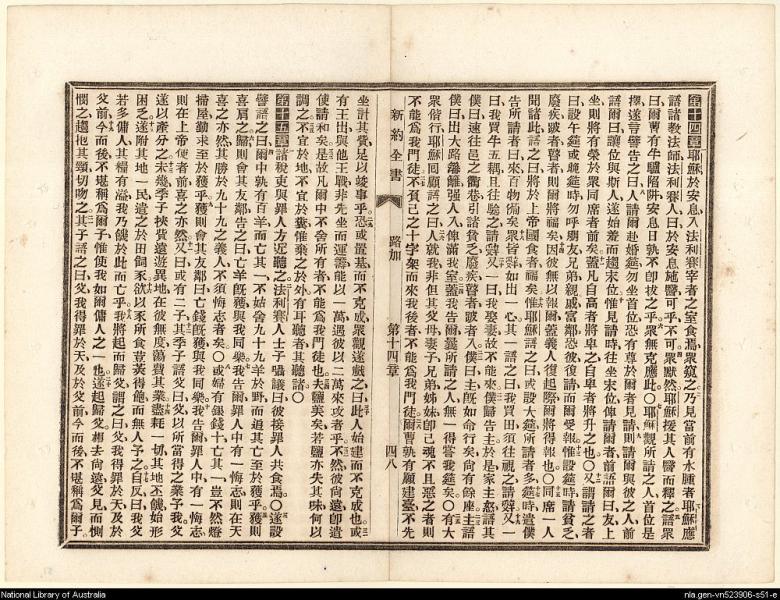 第十四章耶穌於安息入法利賽宰者之室食焉衆窺之乃見當前有水腫者耶穌應
語諸教法師法利賽人曰於安息施醫可乎不可衆默然耶穌援其人醫而釋之語衆
曰爾曹有牛驢陷阱安息日孰不卽拔之乎衆無克應此○耶穌觀所請之人首位是
擇遂言譬告之曰人請爾赴婚筵勿坐首位恐有尊於爾者見請則請爾與彼之人前
語爾曰讓位與斯人遂始羞而趨末位惟見請時往坐末位俾請爾者前語爾曰友上
坐則將有榮於衆同席者前矣蓋凡自高者將卑之自卑者將升之也○又謂請之者
曰設午筵或晚筵時勿呼朋友兄弟親戚富鄰恐彼復請而爾受報惟設筵時請貧乏
廢疾跛者瞽者則爾將福矣因彼無以報爾蓋義人復起際爾將得報也○同席一人
聞諸此語之曰將於上帝國食者福矣惟耶穌語之曰或設大筵所請者多筵時遣僕
告所請者曰來百物備矣衆皆辭如出一心其一語之曰我買田須往視之請辭又一
曰我買牛五耦且往驗之請辭又一曰我娶妻故不能來僕歸告主於是家主怒語其
僕曰速往邑之衢巷引諸貧乏廢疾瞽者跛者入僕曰主旣如命行矣尚有餘座主語
僕曰出大路籬強人入俾滿我室蓋我告爾曹所請之人無一得嘗我筵矣○有大
衆偕行耶穌回顧語之曰人就我非但其父母妻子兄弟姊妹卽己魂不且惡之者則
不能爲我門徒不負己之十字架而來我後者不能爲我門徒爾曹孰有願建臺不先
新約全書 路加 第十四章 四八
坐計其費足以竣事乎恐或置基而不克成衆觀遂戲之曰此人始建而不克成也或
有王出與他王戰非先坐而運籌能以一萬遇彼以二萬來攻者乎不然彼尚遠卽遣
使請和矣是故凡爾中不舍所有者不能爲我門徒也夫鹽美矣若鹽亦失其味何以
調之不宜於地不宜於糞惟棄之於外有耳聽者其聽諸○
第十五章諸稅吏與罪人方近聽之法利賽人士子竊議曰彼接罪人共食焉○遂設
譬語之曰爾中孰有百羊而亡其一不姑舍九十九羊於野而追其亡至於獲乎獲則
喜肩之歸則會其友鄰告之曰亡羊旣獲與我同樂我告爾罪人中有一悔志則在天
喜之亦然其勝於九十九之義人不須悔志者矣○或婦有銀錢十亡其一豈不然燈
掃屋勤求至於獲乎獲則會其友鄰曰亡錢旣獲與我同樂我告爾罪人中有一悔志
則在上帝使者前喜之亦然又曰或有二子其季子語父曰父以所當得之業予我父
遂以產分之未幾季子挾貲遠遊異地在彼無度蕩費其業盡耗一切其地乏饑始形
困乏遂附其地一民遣之於田飼豕欲以豕所食荳莢得飽而無人予之自反曰我父
若多傭人其糧有溢我乃饑於此而亡乎我將起而歸父謂之曰父我得罪於天及於
父前今而後不堪稱爲爾子惟使我如爾傭人之一也遂起歸父相去尚遠父見而惻
憫之趨抱其頸切吻之其子語之曰父我得罪於天及於父前今而後不堪稱爲爾子
National Library of Australia
nla.gen-vn523906-s51-e